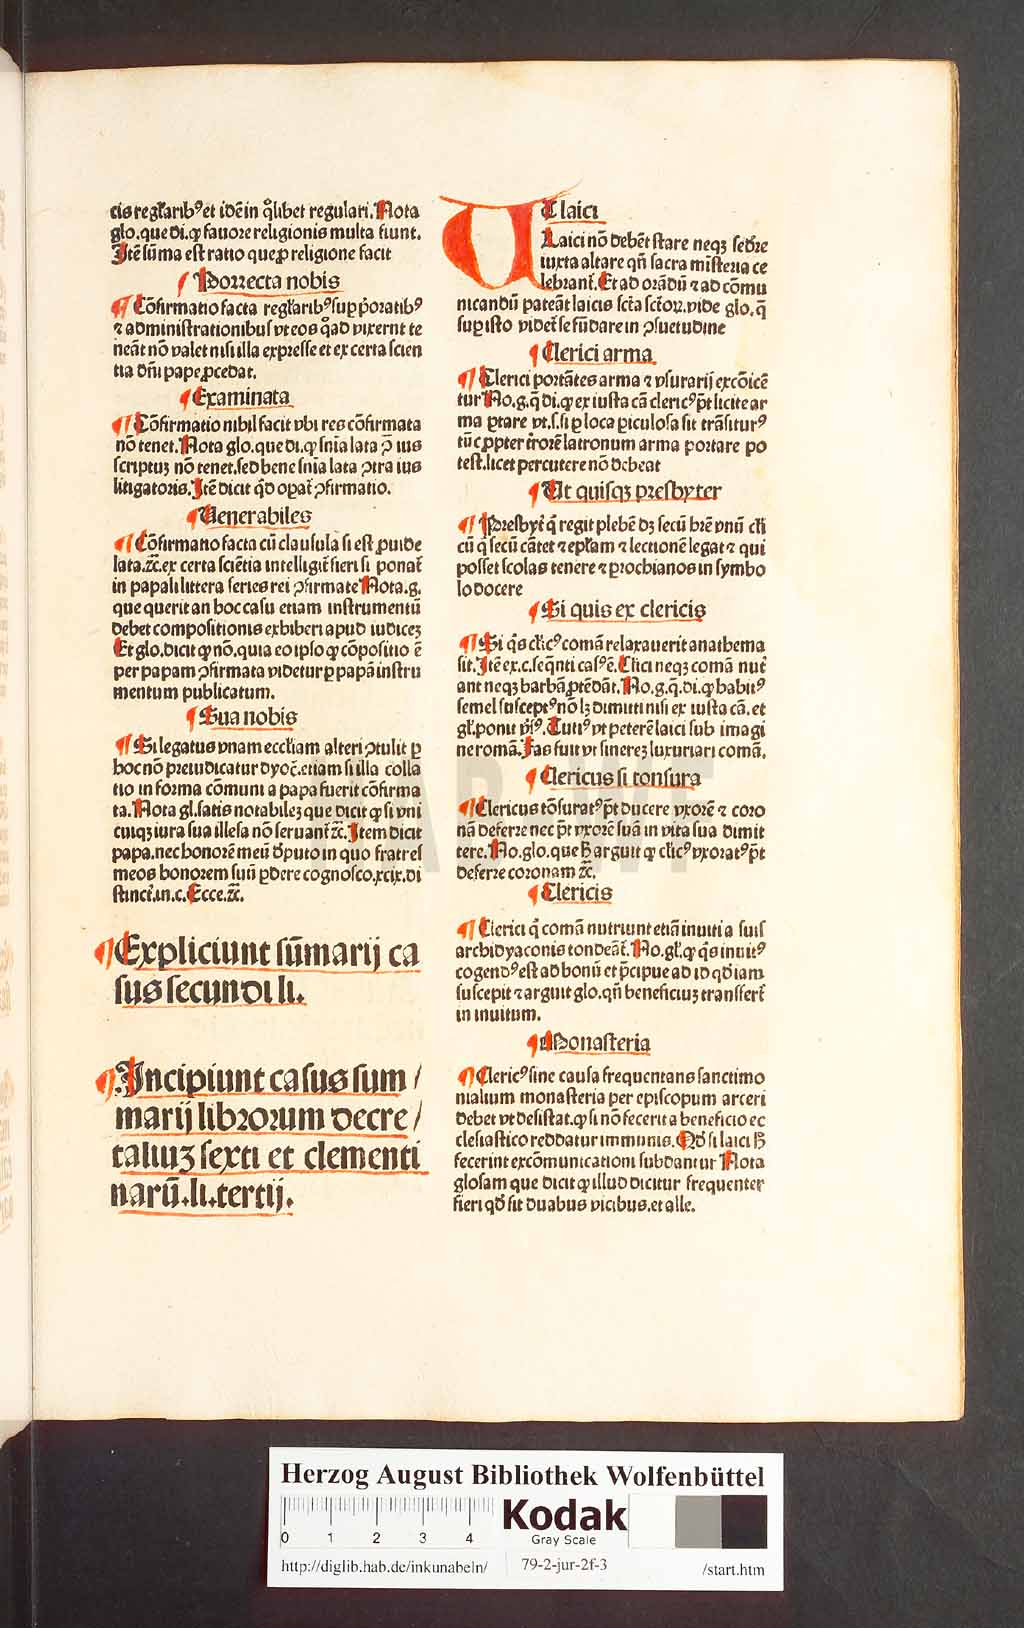 cis regl̃aribꝰ et idẽ in q̃libet regulari. Nota
glo. que di. ꝙ fauore religionis multa fiunt.
Itẽ sũma est ratio que ꝓ religione facit
¶ Porrecta nobis
¶ Cõfirmatio facta regl̃aribꝰ sup p̱oratibꝰ
⁊ administrationibus vt eos q̃ad vixernt te
neãt nõ valet nisi illa expresse et ex certa scien
tia dñi pape ꝓcedat.
¶ Examinata
¶ Cõfirmatio nihil facit vbi res cõfirmata
nõ tenet. Nota glo. que di. ꝙ snĩa lata ꝯ̃ ius
scriptuꝫ nõ tenet. sed bene snĩa lata ꝯtra ius
litigatoris. Itẽ dicit qd̃ opat̃ ꝯfirmatio.
¶ Venerabiles
¶ Cõfirmatio facta cũ clausula si est ꝓuide
lata. ⁊c̃. ex certa sciẽtia intelligit̃ fieri si ponat̃
in papali littera series rei ꝯfirmate Nota. g.
que querit an hoc casu etiam instrumentũ
debet compositionis exhiberi apud iudiceꝫ
Et glo. dicit ꝙ nõ. quia eo ipso ꝙ cõpositio ẽ
per papam ꝯfirmata videtur ꝑ papã instru
mentum publicatum.
¶ Sua nobis
¶ Si legatus vnam eccl̃iam alteri ꝯtulit ꝑ
hoc nõ preiudicatur dyoc̃. etiam si illa colla
tio in forma cõmuni a papa fuerit cõfirma
ta. Nota gl. satis notabileꝫ que dicit ꝙ si vni
cuiqꝫ iura sua illesa nõ seruant̃ ⁊c̃. Item dicit
papa. nec honorẽ meũ d̃puto in quo fratres
meos honorem suũ ꝑdere cognosco. xcix. di
stinct̃. in. c. Ecce. ⁊c̃.
¶ Expliciunt sũmarij ca
sus secundi li.
¶ Incipiunt casus sum /
marij librorum decre /
taliuꝫ sexti et clementi
narũ. li. tertij.
UT laici
Laici nõ debẽt stare neqꝫ sedere
iuxta altare qñ sacra misteria ce
lebrant̃. Et ad orãdũ ⁊ ad cõmu
nicandũ pateãt laicis sct̃a sct̃oꝝ. vide glo. q̃
sup isto videt̃ se fũdare in ꝯsuetudine
¶ Clerici arma
¶ Clerici portãtes arma ⁊ vsurarij excõicẽ
tur No. g. q̃ di. ꝙ ex iusta cã clericꝰ p̃t licite ar
ma ꝑtare vt. s. si ꝑ loca ꝑiculosa sit trãsiturꝰ
tũc ꝓpter t̃rorẽ latronum arma portare po
test. licet percutere nõ debeat
¶ Ut quisqꝫ presbyter
¶ Presbyt̃ q̃ regit plebẽ dꝫ secũ hr̃e vnũ cl̃i
cũ q̃ secũ cãtet ⁊ epl̃am ⁊ lectionẽ legat ⁊ qui
posset scolas tenere ⁊ ꝑrochianos in symbo
lo docere
¶ Si quis ex clericis
¶ Si q̃s cl̃icꝰ comã relaxauerit anathema
sit. Itẽ ex. c. seq̃nti casꝰ ẽ. Cl̃ici neqꝫ comã nut̃
ant neqꝫ barbã ꝓtẽdãt. No. g. q̃. di. ꝙ habitꝰ
semel susceptꝰ nõ lꝫ dimitti nisi ex iusta cã. et
gl̃. ponit ṽsꝰ. Tutiꝰ vt peterẽ laici sub imagi
ne romã. Fas fuit vt sinereꝫ luxuriari comã.
¶ Clericus si tonsura
¶ Clericus tõsuratꝰ p̃t ducere vxorẽ ⁊ coro
nã deferre nec p̃t vxorẽ suã in vita sua dimit
tere. No. glo. que h̃ arguit ꝙ cl̃icꝰ vxoratꝰ p̃t
deferre coronam ⁊c̃.
¶ Clericis
¶ Clerici q̃ comã nutriunt etiã inuiti a suis
archidyaconis tondeãt̃. No. gl̃. ꝙ q̃s inuitꝰ
cogendꝰ est ad bonũ et p̃cipue ad id qd̃ iam
suscepit ⁊ arguit glo. qñ beneficiuꝫ transfert̃
in inuitum.
¶ Monasteria
¶ Clericꝰ sine causa frequentans sanctimo
nialium monasteria per episcopum arceri
debet vt desistat. ꝙ si nõ fecerit a beneficio ec
clesiastico reddatur immunis. Qd̃ si laici h̃
fecerint excõmunicationi subdantur Nota
glosam que dicit ꝙ illud dicitur frequenter
fieri qd̃ sit duabus vicibus. et alle.
HAB-WF
Herzog August Bibliothek Wolfenbüttel
0 1 2 3 4
Kodak
Gray Scale
http://diglib.hab.de/inkunabeln/ 79-2-jur-2f-3 /start.htm